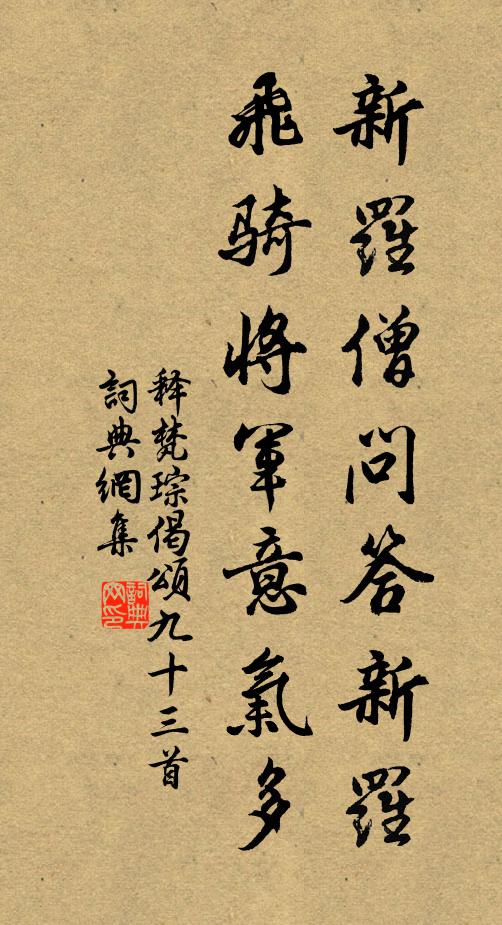 新羅僧問答新羅
飛騎將軍意氣多
释梵琮偈頌九十三首
詞典網集
詞典
网印